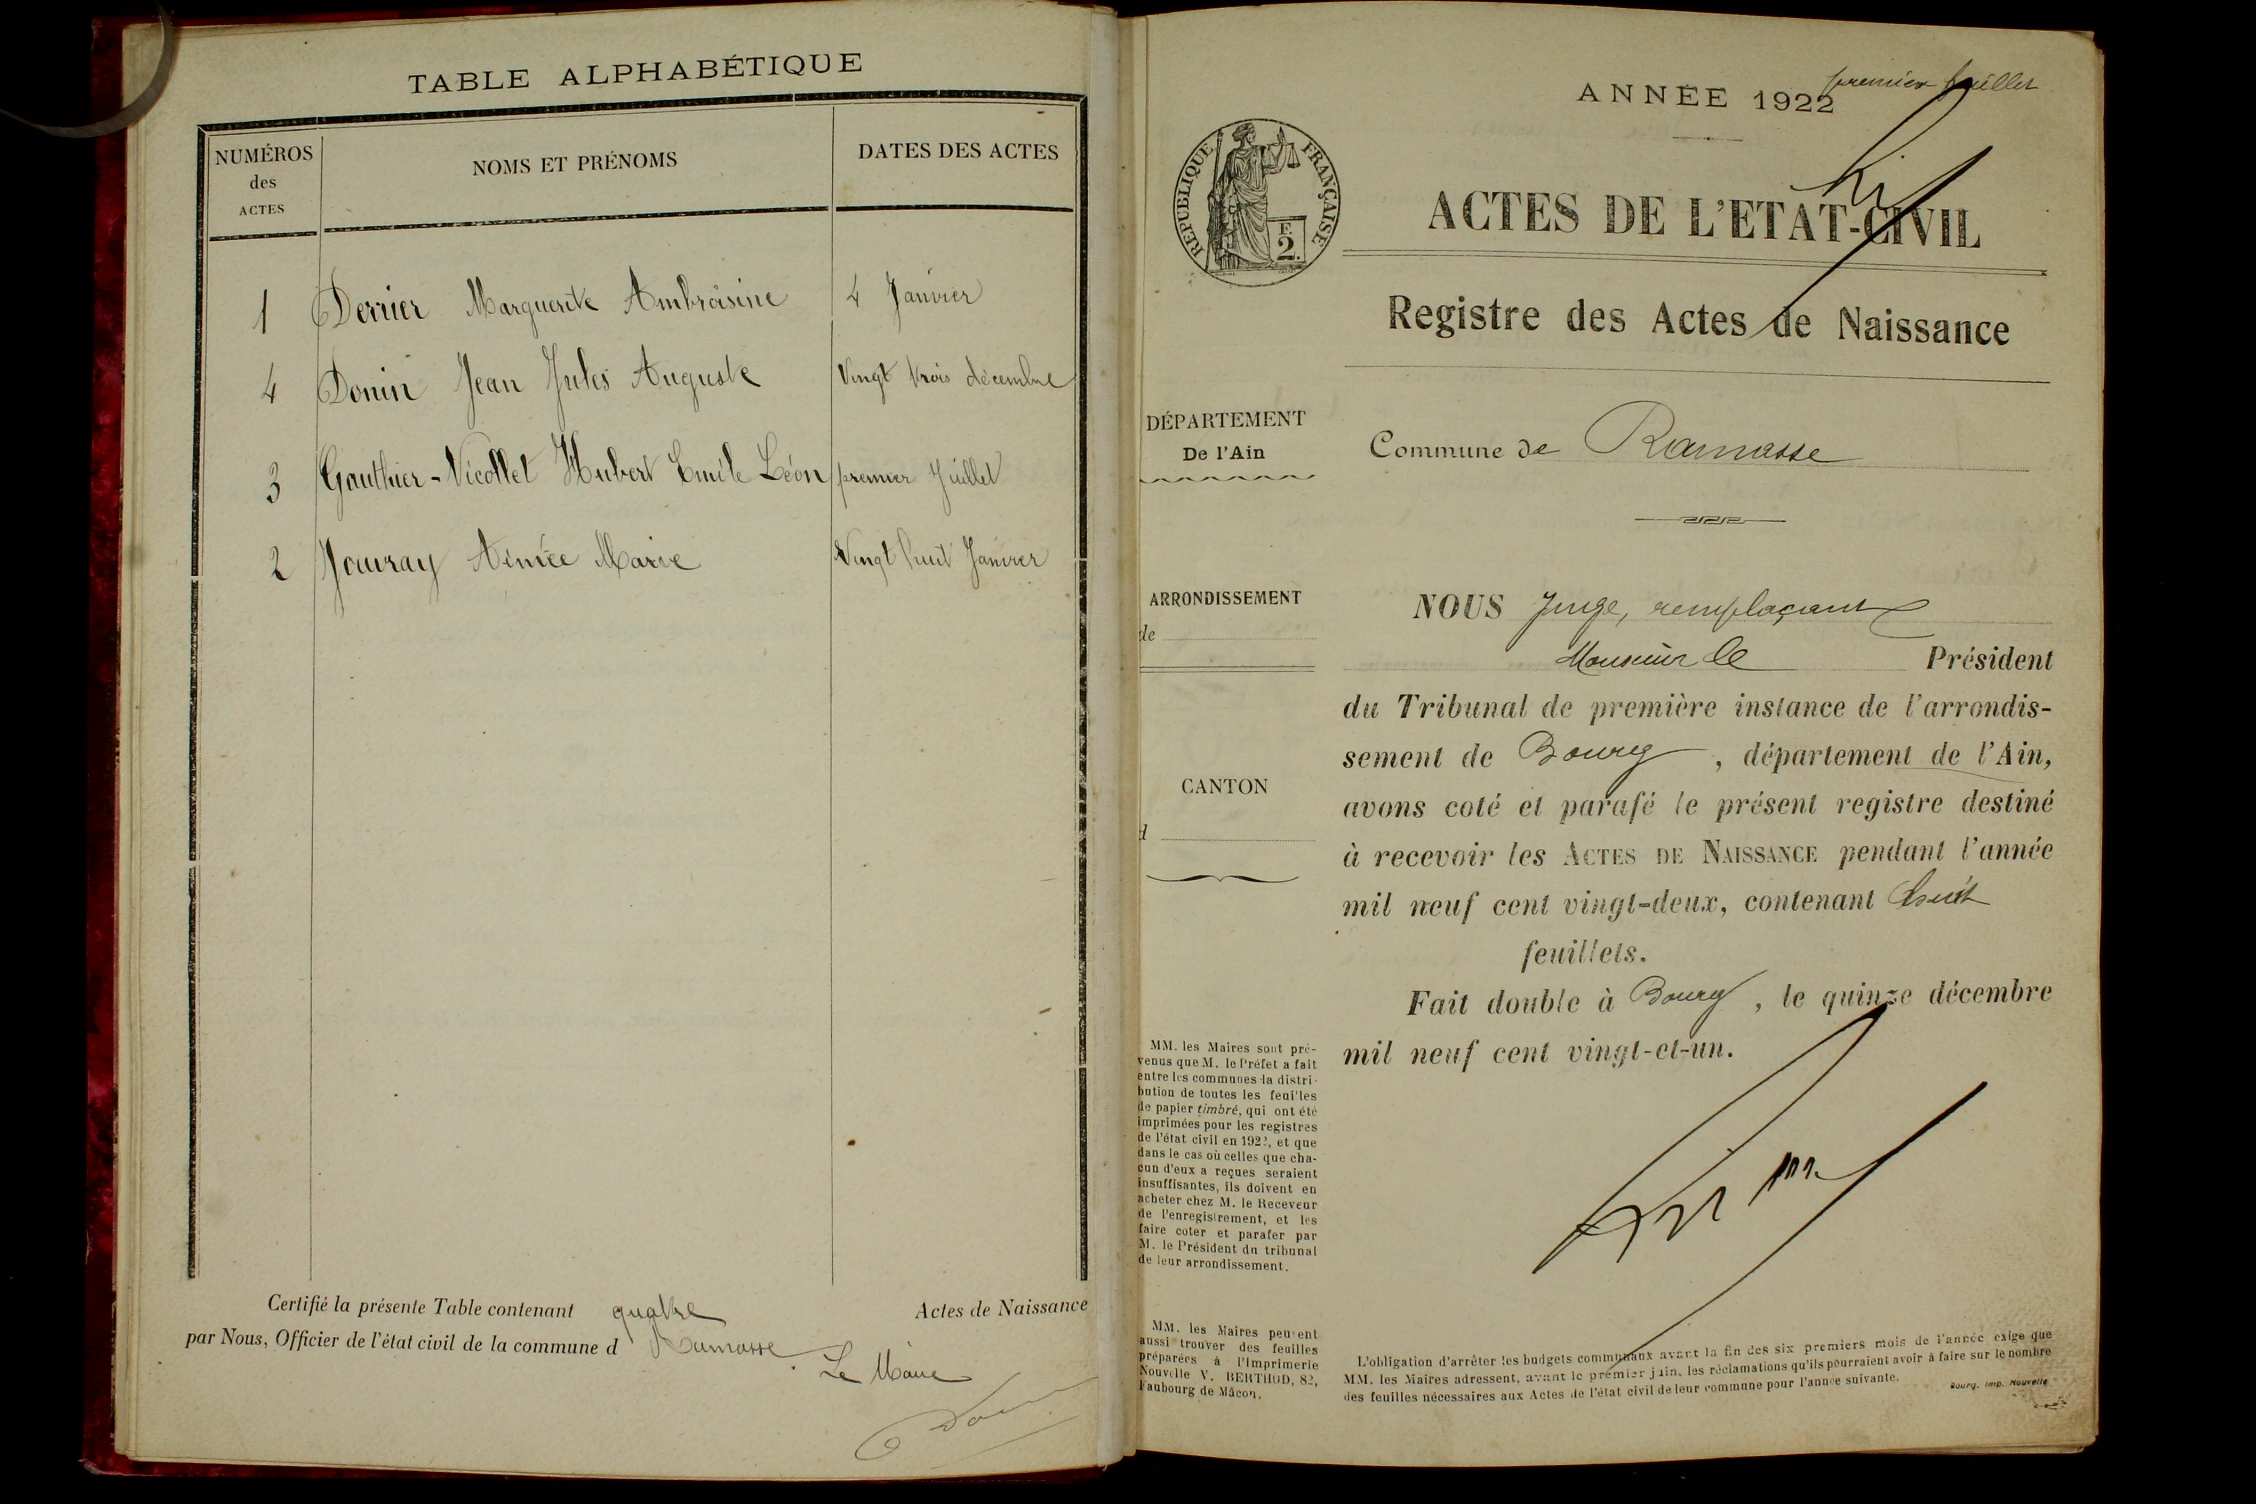 TABLE ALPHABÉTIQUE
NUMÉROS
des
ACTES
NOMS ET PRÉNOMS
DATES DES ACTES
1 Derrier Marguerite Ambroisine 4 Janvier
4 Donin Jean Jules Auguste Vingt trois décembre
3 Gauthier-Nicollet Hubert Emile Léon premier Juillet
2 Jouvray Aimée Marie Vingt huit Janvier
Certifié la présente Table contenant quatre Actes de Naissance
par Nous, Officier de l'état civil de la commune d Ramasse
Le Maire
premier feuillet
ANNÉE 1922
RÉPUBLIQUE FRANÇAISE
F.
2.
ACTES DE L'ETAT-CIVIL
Registre des Actes de Naissance
DÉPARTEMENT
De l'Ain
Commune de Ramasse
ARRONDISSEMENT
de
CANTON
d
NOUS Juge, remplaçant
Monsieur le Président
du Tribunal de première instance de l'arrondis-
sement de Bourg, département de l'Ain,
avons coté et parafé le présent registre destiné
à recevoir les ACTES DE NAISSANCE pendant l'année
mil neuf cent vingt-deux, contenant huit
feuillets.
Fait double à Bourg, le quinze décembre
mil neuf cent vingt-et-un.
MM. les Maires sont pré-
venus que M. le Préfet a fait
entre les communes la distri-
bution de toutes les feuilles
de papier timbré, qui ont été
imprimées pour les registres
de l'état civil en 1922, et que
dans le cas où celles que cha-
cun d'eux a reçues seraient
insuffisantes, ils doivent en
acheter chez M. le Receveur
de l'enregistrement, et les
faire coter et parafer par
M. le Président du tribunal
de leur arrondissement.
MM. les Maires peuvent
aussi trouver des feuilles
préparées à l'Imprimerie
Nouvelle V. BERTHOD, 82,
Faubourg de Mâcon.
L'obligation d'arrêter les budgets communaux avant la fin des six premiers mois de l'année exige que
MM. les Maires adressent, avant le premier juin, les réclamations qu'ils pourraient avoir à faire sur le nombre
des feuilles nécessaires aux Actes de l'état civil de leur commune pour l'année suivante.
Bourg. Imp. Nouvelle